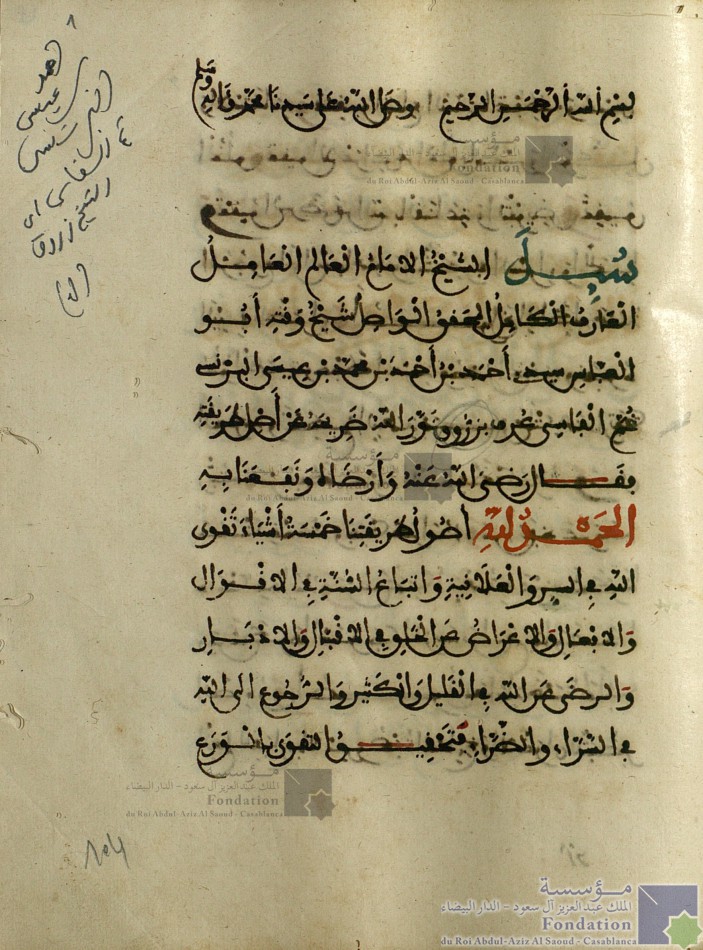 بسم الله الرحمن الرحيم وصلى الله على سيدنا محمد وءاله وسلم
سيل الشيخ الامام العالم العامل
العارف الكامل المحقق الواصل شيخ وقته أبو
العباس سيدي أحمد بن أحمد بن محمد بن عيسى البرنسي
ثم الفاسي عرف بزروق نور الله ضريحه عن أصل طريقته
فقال رضي الله عنه وأرضاه ونفعنا به
الحمد لله أصول طريقتنا خمسة أشياء تقوى
الله في السر والعلانية واتباع السنة في الاقوال
والافعال والاعراض عن الخلق في الاقبال والادبار
والرضى عن الله في القليل والكثير والرجوع الى الله
في السراء والضراء فتحقيق التقوى بالورع
٨
احمد
عيسى
الفاسي
الشيخ زروق
مؤسسة
الملك عبد العزيز آل سعود - الدار البيضاء
Fondation
du Roi Abdul-Aziz Al Saoud - Casablanca
مؤسسة
الملك عبد العزيز آل سعود - الدار البيضاء
Fondation
du Roi Abdul-Aziz Al Saoud - Casablanca